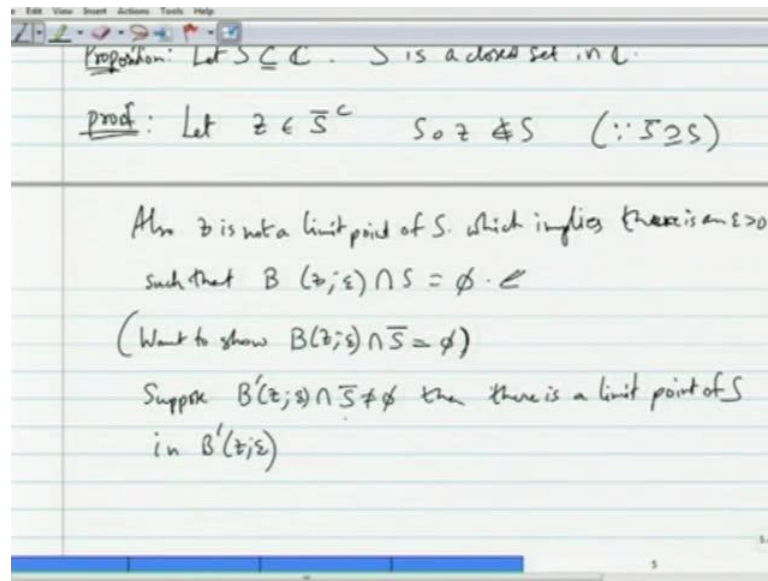 Edit View Insert Actions Tools Help
Proposition: Let S ⊆ ℂ. S̅ is a closed set in ℂ.
proof: Let z ∈ S̅ᶜ So z ∉ S (∵ S̅ ⊇ S)
Also z is not a limit point of S. which implies there is an ε>0
such that B (z;ε) ∩ S = ϕ.
(Want to show B(z;ε) ∩ S̅ = ϕ)
Suppose B'(z;ε) ∩ S̅ ≠ ϕ then there is a limit point of S
in B'(z;ε)
5